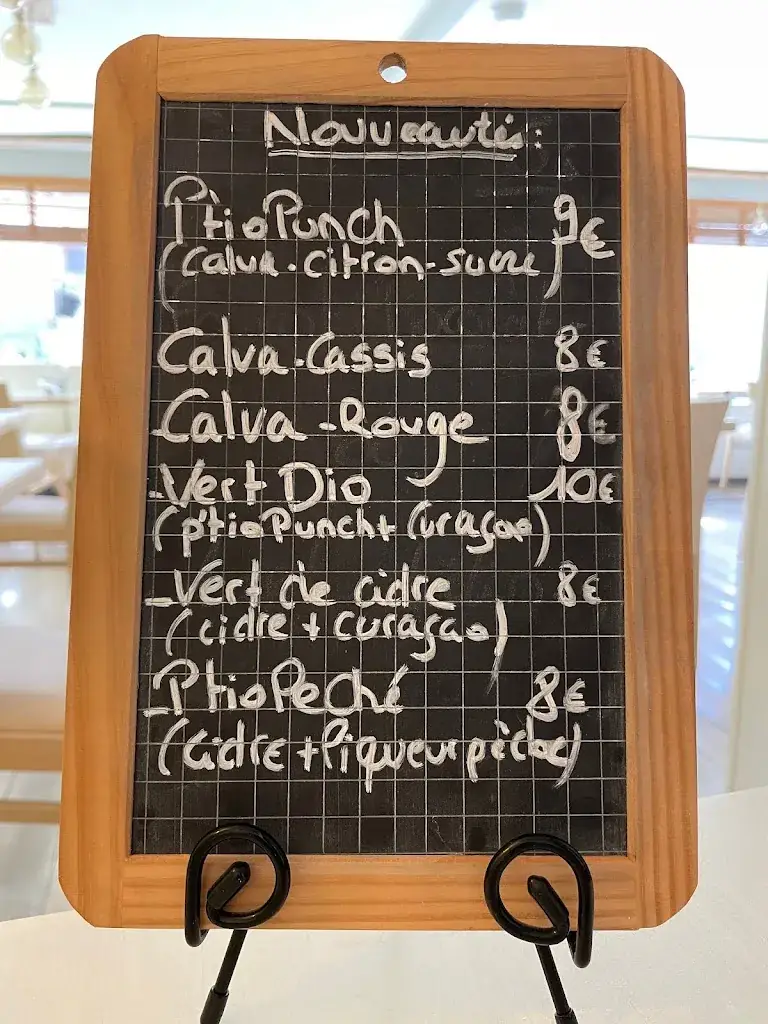 Nouveautés:
P'tio Punch 9€
(Calva-citron-sucre)
Calva-Cassis 8€
-Calva-Rouge 8€
-Vert Dio 10€
(p'tio Punch + Curaçao)
-Vert de cidre 8€
(cidre + curaçao)
-Ptio Peché 8€
(Cidre + liqueur pèche)